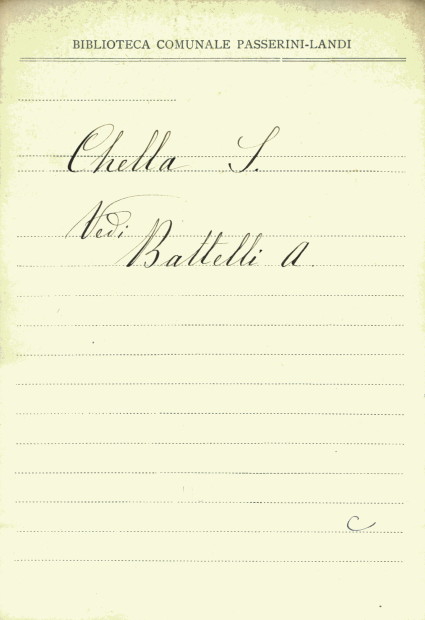 BIBLIOTECA COMUNALE PASSERINI-LANDI
Chella S.
Vedi
Battelli A.
C